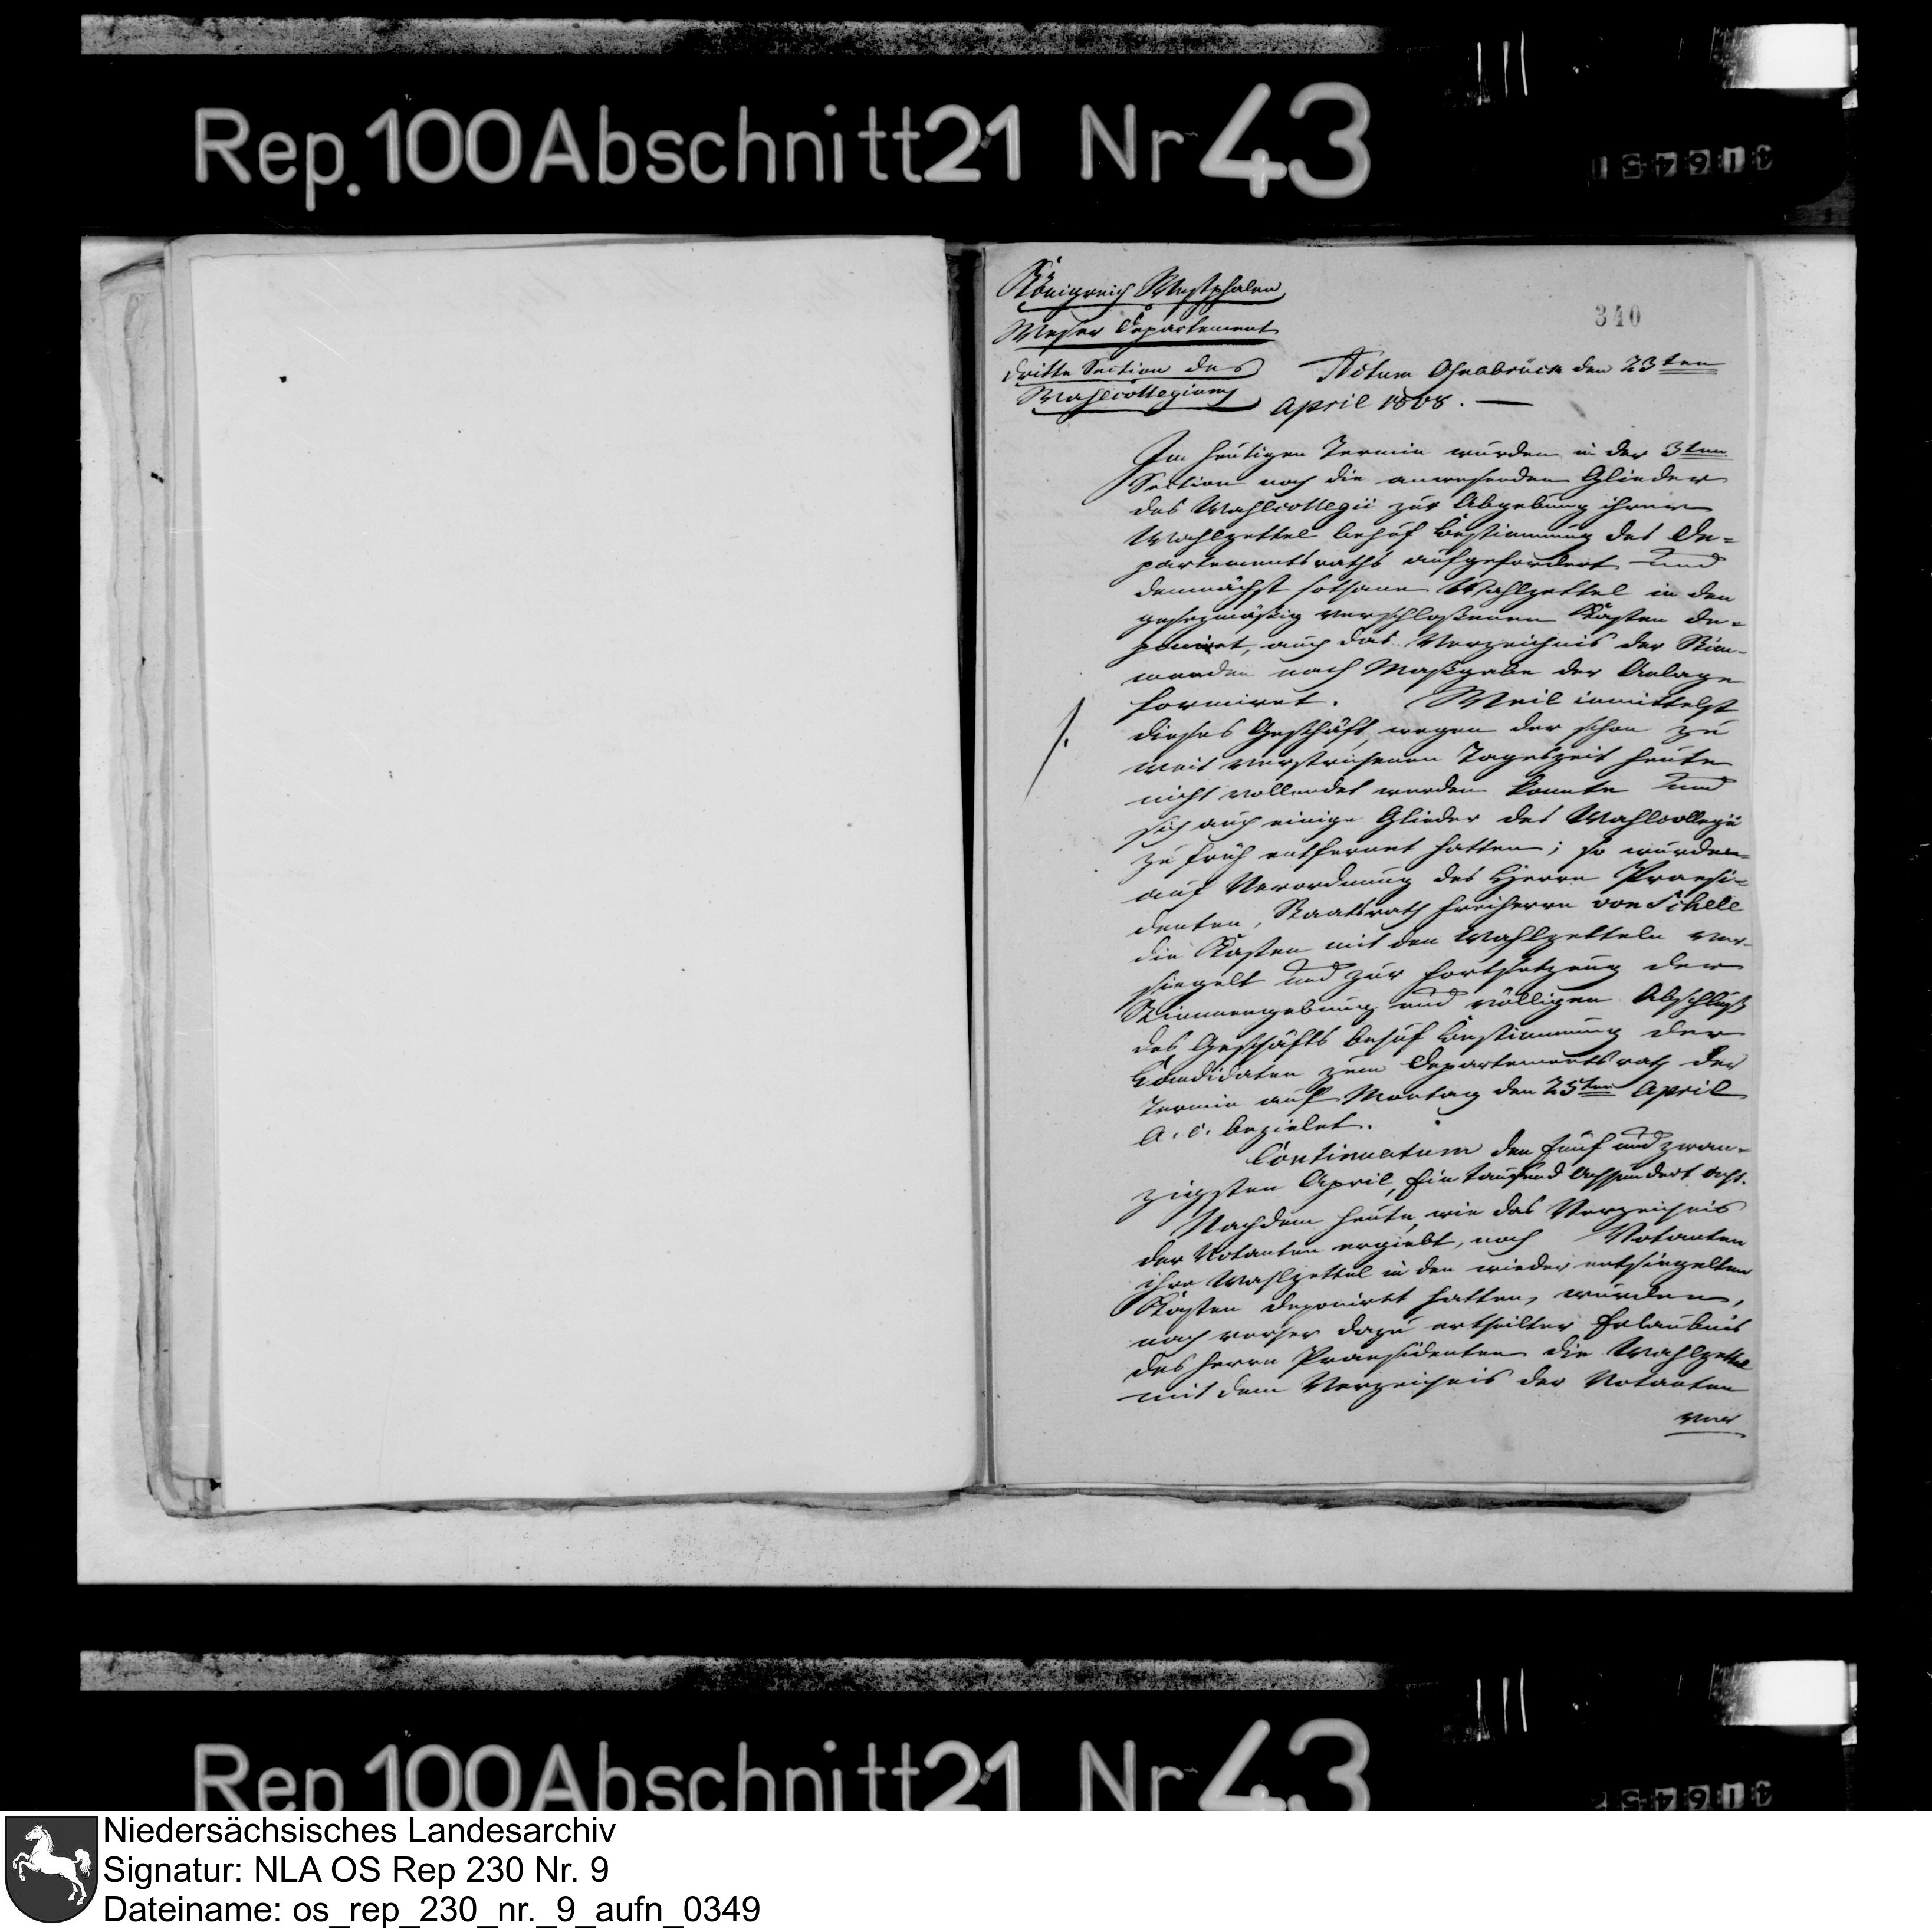 Rep. 100 Abschnitt 21 Nr 43
Königreich Westphalen
340
Weser Departement
dritte Section des
Wahlcollegiums
Actum Osnabrück den 23ten
April 1808. —
Im heutigen Termin wurden in der 3ten
Section noch die anwesenden Glieder
des Wahlcollegii zur Abgebung ihrer
Wahlzettel behuf Bestimmung des De-
partementsraths aufgefordert und
demnächst sothane Wahlzettel in den
gesezmäßig verschloßenen Kasten de-
poniret, auch das Verzeichnis der Stim-
menden nach Maßgabe der Anlage
formiret. Weil inmittelst
dieses Geschäft, wegen der schon zu
weit verstrichenen Tageszeit heute
nicht vollendet werden konnte und
sich auch einige Glieder des Wahlcollegii
zu früh entfernet hatten; so wurden
auf Verordnung des Herrn Praesi-
denten, Staatsrath Freiherrn von Schele
die Kasten mit den Wahlzetteln ver-
siegelt und zur Fortsetzung der
Stimmengebung und völligen Abschluß
des Geschäfts behuf Bestimmung der
Candidaten zum Departementsrath der
Termin auf Montag den 25ten April
a. c. bezielet.
Continuatum den fünf und zwan-
zigsten April, Ein tausend Achthundert acht.
Nachdem heute, wie das Verzeichnis
der Votanten ergiebt, noch Votanten
ihre Wahlzettel in den wieder entsiegelten
Kasten deponirt hatten, wurden,
nach vorher dazu ertheilter Erlaubnis
des Herrn Praesidenten die Wahlzettel
mit dem Verzeichnis der Votanten
ver
Rep 100 Abschnitt 21 Nr 43
Niedersächsisches Landesarchiv
Signatur: NLA OS Rep 230 Nr. 9
Dateiname: os_rep_230_nr._9_aufn_0349